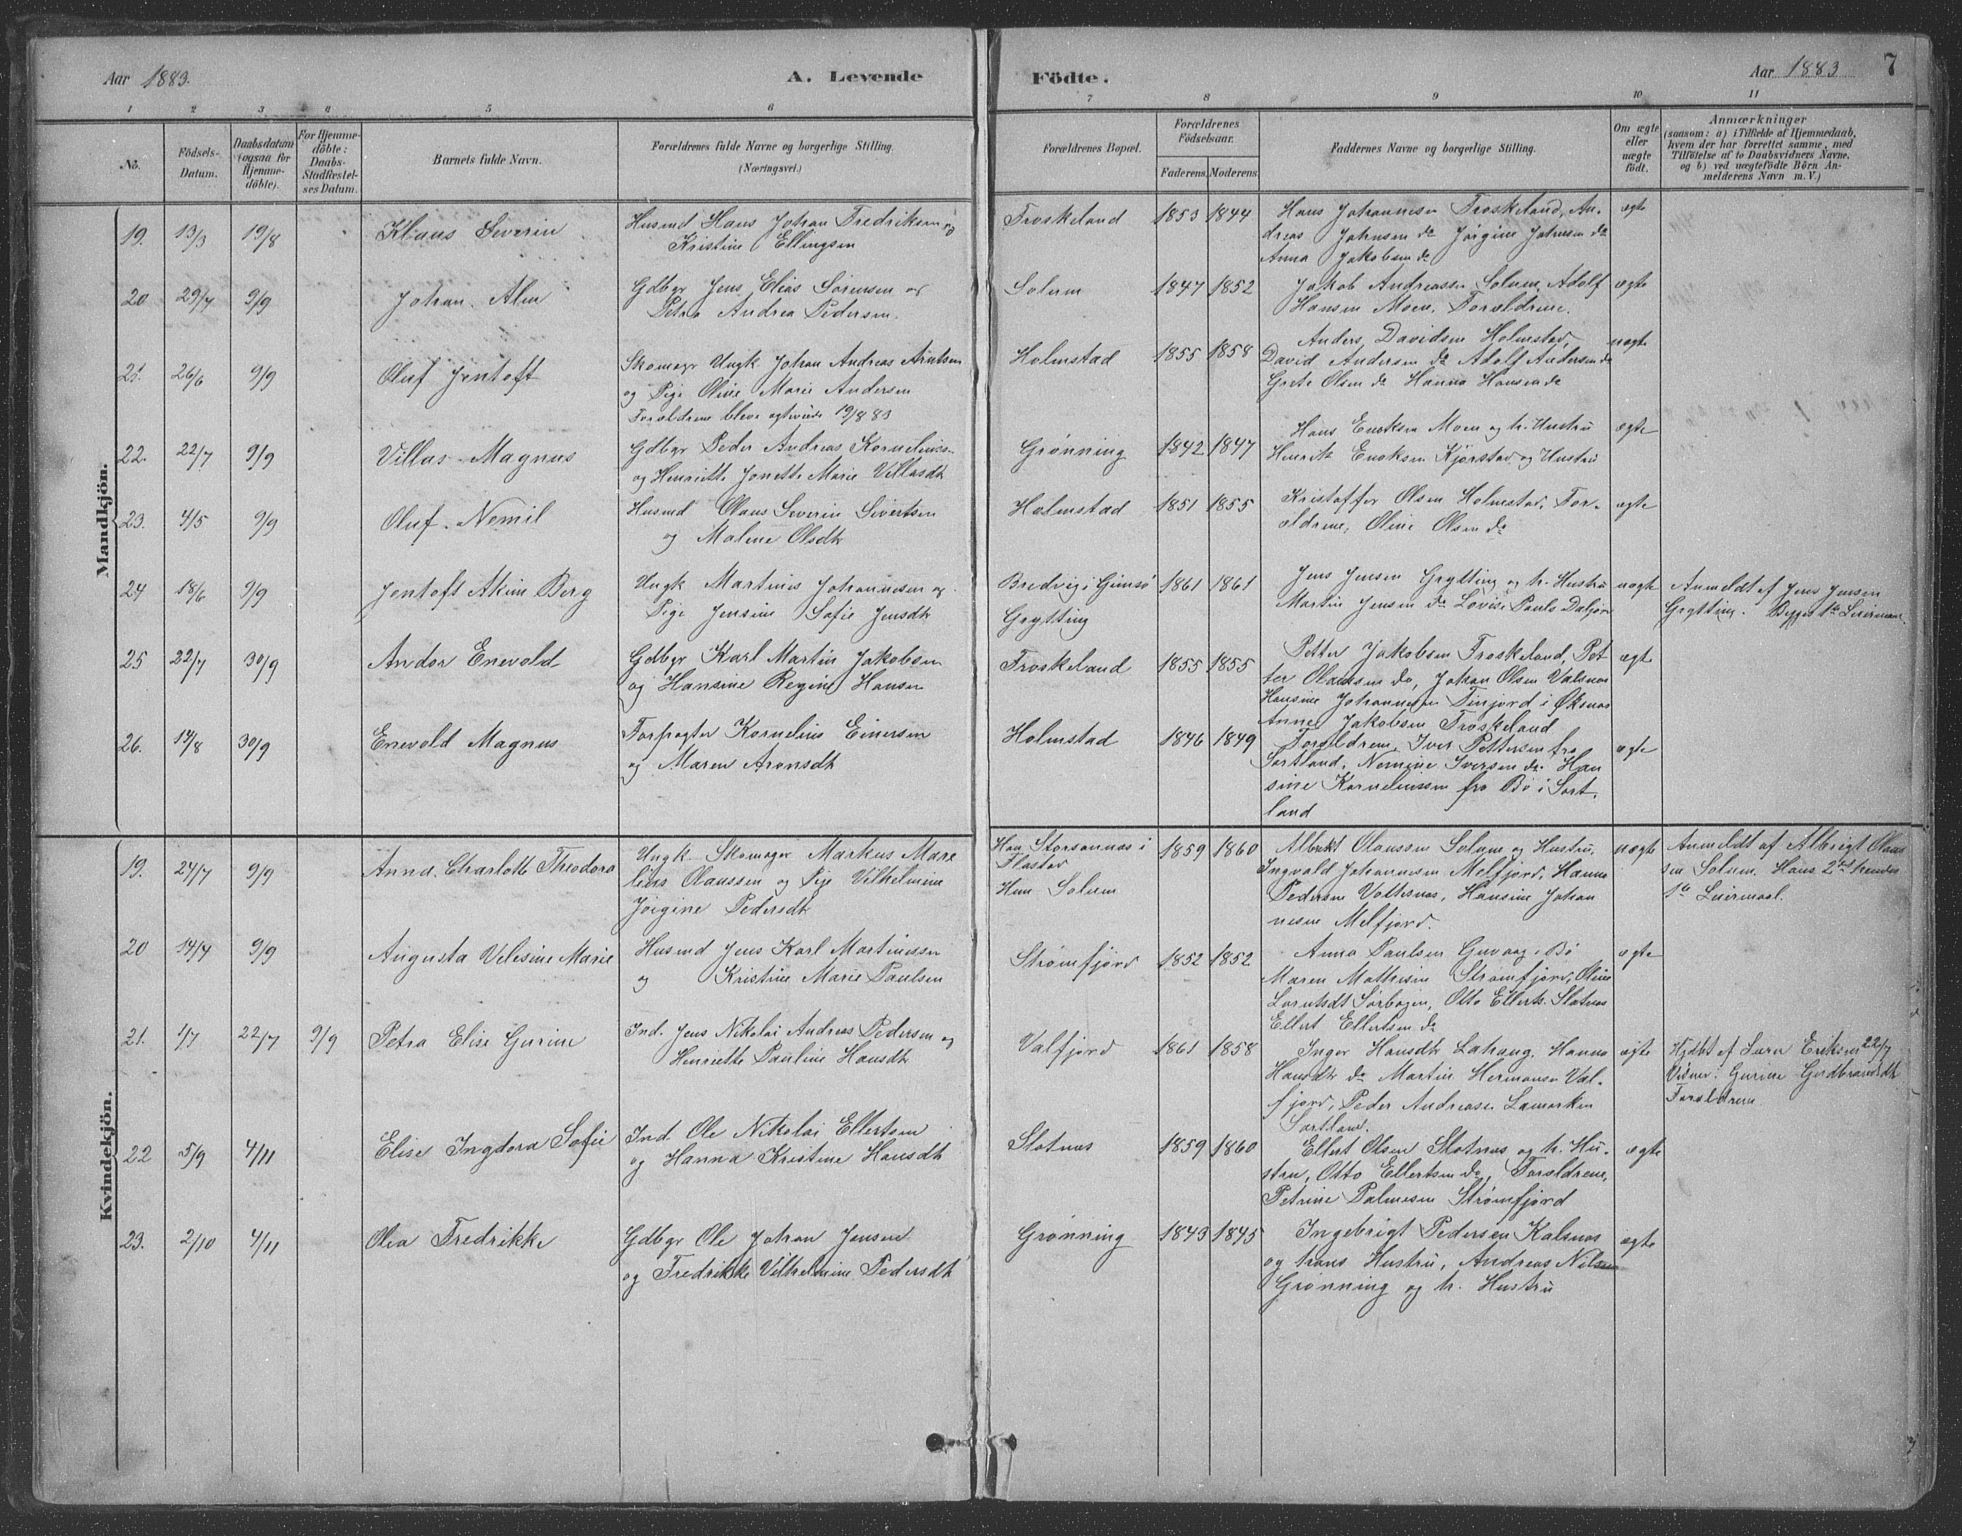 Aar 1883.
A. Levende
Födte.
Aar 1883
7
1 2 3 4 5 6 7 8 9 10 11
No.
Födsels-
Datum.
Daabsdatum
(ogsaa for
Hjemme-
döbte).
For Hjemme-
döbte:
Daabs-
Stadfæstel-
ses Datum.
Barnets fulde Navn.
Forældrenes fulde Navne og borgerlige Stilling.
(Næringsvei.)
Forældrenes Bopæl.
Forældrenes
Födselsaar.
Faderens. Moderens.
Faddernes Navne og borgerlige Stilling.
Om ægte
eller
uægte
födt.
Anmærkninger
(saasom: a) i Tilfælde af Hjemmedaab,
hvem der har forrettet samme, med
Tilföielse af to Daabsvidners Navne,
og b) ved uægtefödte Börn An-
melderens Navn m. V.)
Mandkjön.
19. 13/3 19/8
Klaus Severin
Husmd Hans Johan Fredriksen og
Kristine Ellingsen
Froskeland 1853 1844
Hans Johannesen Froskeland, An-
dreas Johnsen do Jørgine Johnsen do
Anna Jakobsen do
ægte
20 29/7 9/9
Johan Alm
Gdbgr Jens Elias Sørensen og
Petra Andrea Pedersen.
Solum 1847 1852
Jakob Andreassen Solum, Adolf
Hansen Moen, Forældrene.
ægte
21. 26/6 9/9
Oluf Jentoft
Skomagr Ungk Johan Andreas Arntsen
og Pige Oline Marie Andersen
Forældrene bleve egteviede 19/8 83
Holmstad 1855 1858
Anders Davidsen Holmstad,
David Andersen do Adolf Andersen do
Grete Olsen do Hanna Hansen do
uægte
22. 22/7 9/9
Villas Magnus
Gdbgr Peder Andreas Kornelius
og Henriette Jonette Marie Villasdt
Grønning 1842 1847
Hans Enoksen Moen og h. Hustru
Henrik Enoksen Kjørstad og Hustru
ægte
23. 4/5 9/9
Oluf Nemil
Husmd Olaus Severin Sivertsen
og Malene Olsdt
Holmstad 1851 1855
Kristoffer Olsen Holmstad, For-
ældrene, Oline Olsen do
ægte
24 18/6 9/9
Jentoft Akim Berg
Ungk Martinus Johannesen og
Pige Jensine Sofie Jensdt
Bredvig i Gimsø
Grytting
1861 1861
Jens Jensen Grytting og h. Hustru
Martin Jensen do Lovise Pauls
uægte
Anmeldt af Jens Jensen
Grytting. Begges 1te Leierm
25 22/7 30/9
Andor Enevold
Gdbgr Karl Martin Jakobsen
og Hansine Regine Hansen
Froskeland 1855 1855
Petter Jakobsen Froskeland, Pet
ter Olaussen do, Johan Olsen Valsnæs
Hansine Johannesen Finjord i Øksnæs
Anne Jakobsen Froskeland
ægte
26. 14/8 30/9
Enevold Magnus
Forpagter Kornelius Einersen
og Maren Aronsdt
Holmstad 1846 1849
Forældrene, Iver Pettersen fra
Sortland, Nemine Iversen do Han
sine Korneliussen fra Bø i Sort
land
ægte
Kvindekjön.
19. 24/7 9/9
Anna Charlotte Theodora
Ungk Skomager Markus Mare
lius Olaussen og Pige Vilhelmine
Jørgine Pedersdt
Han Storsannæs i
Flastad
Hun Solum
1859 1860
Albrikt Olaussen Solum og Hustru,
Ingvald Johannesen Melfjord, Hanna
Pedersen Valtesnæs, Hansine Johan
nesen Melfjord.
uægte
Anmeldt af Albrigt Olaus
sen Solum. Hans 2det hendes
1te Leiermaal.
20 14/7 9/9
Augusta Velesine Marie
Husmd Jens Karl Martinussen
og Kristine Marie Paulsen
Strømfjord 1852 1852
Anna Paulsen Guvaag i Bø
Maren Mathisen Strømfjord, Oline
Larntsdt Sørbogen, Otto Ellerts. Slotnæs
Ellert Ellertsen do
ægte
21. 1/7 22/7 9/9
Petra Elise Gurine
Ind. Jens Nikolai Andreas Pedersen og
Henriette Pauline Hansdt
Valfjord 1861 1858
Inger Hansdt Lahaug, Hanna
Hansdt do Martin Hermansen Val-
fjord, Peder Andreasen Lamarken
Sortland.
ægte
Hjdbt af Sara Eriksen 22/7
Vidner: Gurine Gerdbrandsdt
Forældrene
22 5/9 4/11
Elise Ingdora Sofie
Ind. Ole Nikolai Ellertsen
og Hanna Kristine Hansdt
Slotnæs 1859 1860
Ellert Olsen Slotnæs og h. Hu-
stru, Otto Ellertsen do, Forældrene,
Petrine Palmesen Strømfjord
ægte
23. 2/10 4/11
Olea Fredrikke
Gdbgr Ole Johan Jensen
og Fredrikke Vilhelmine Pedersdt
Grønning 1843 1845
Ingebrigt Pedersen Kalsnæs
og hans Hustru, Andreas Nilsen
Grønning og h. Hustru
ægte